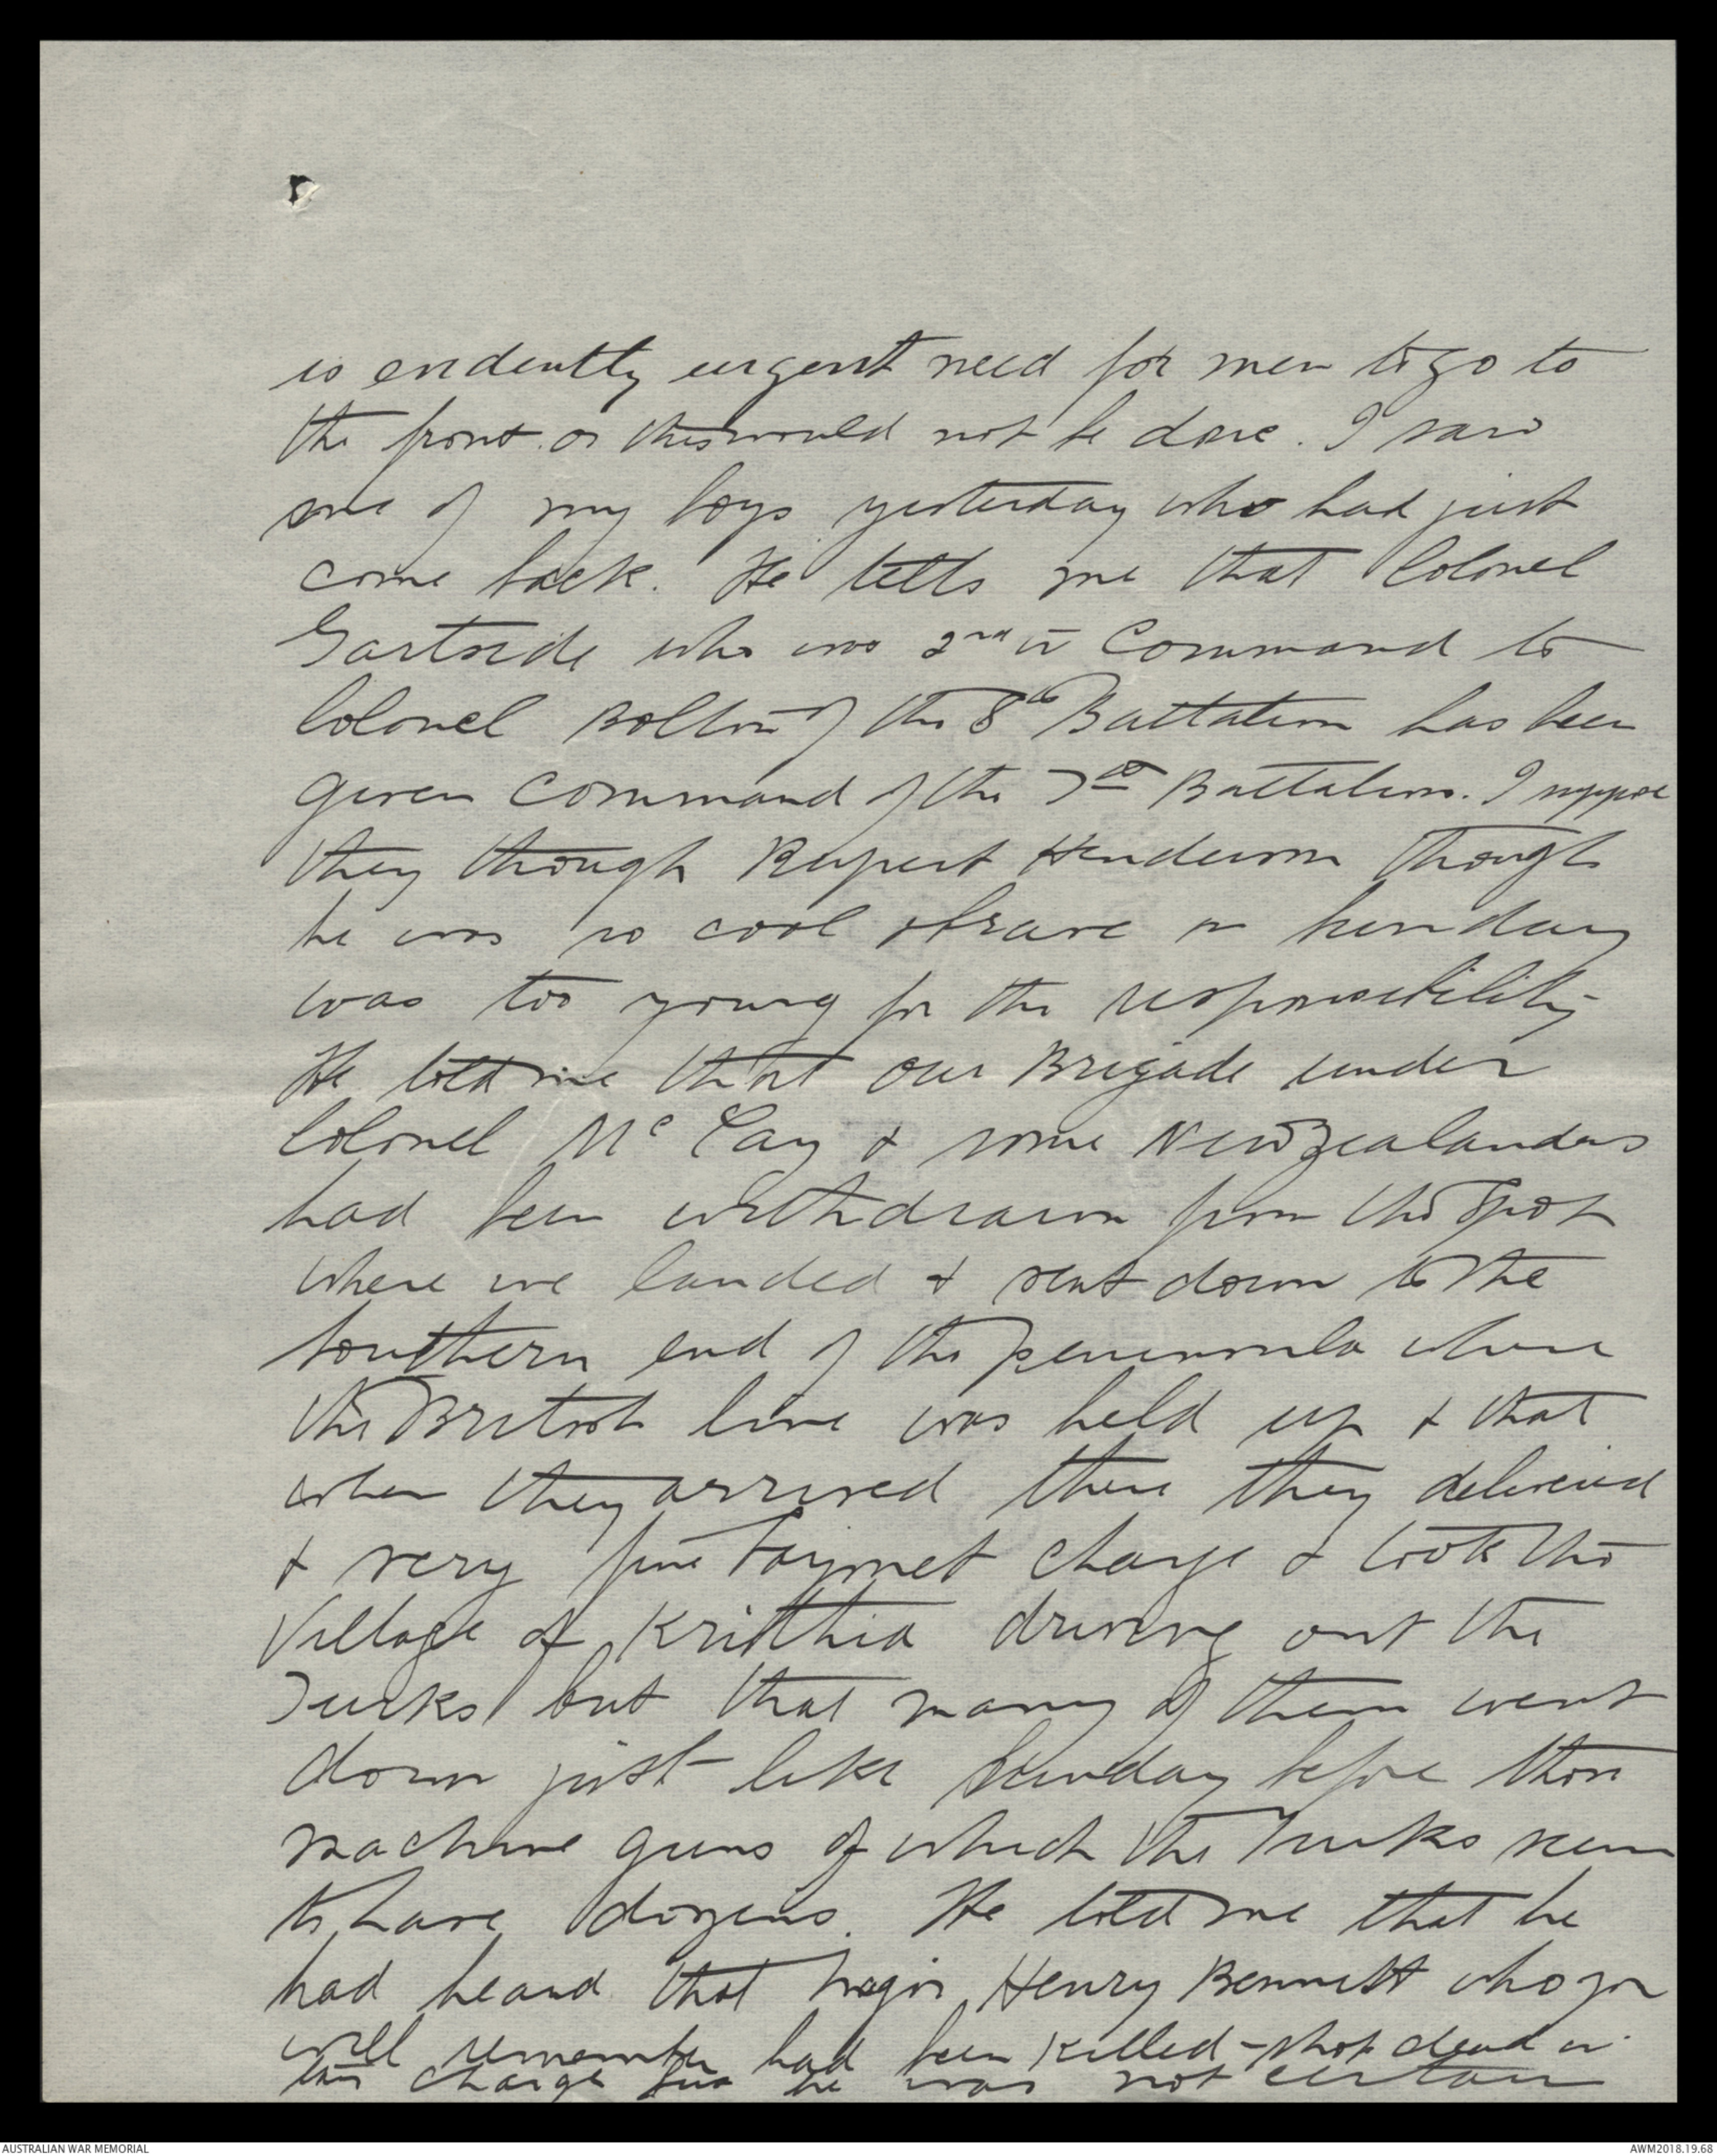 is evidently urgent need for men to go to
the front or this would not be done. I saw
one of my boys yesterday who had just
come back. He tells me that Colonel
Gartside who was 2nd in Command to
Colonel Bolton of the 8th Battalion has been
given command of the 7th Battalion. I suppose
they though Rupert Henderson though
he was so cool & brave on Sunday
was too young for the responsibility
He told me that our Brigade under
Colonel McCay & some New Zealanders
had been withdrawn from the spot
where we landed & sent down to the
Southern end of the peninsula where
the British line was held up & that
when they arrived there they delivered
a very fine bayonet charge & took the
Village of Krithia driving out the
Turks but that many of them went
down just like Sunday before those
machine guns of which the Turks seem
to have dozens. He told me that he
had heard that Major Henry Bennett who you
will remember had been killed - shot dead in
this charge but he was not certain
AUSTRALIAN WAR MEMORIAL
AWM2018.19.68